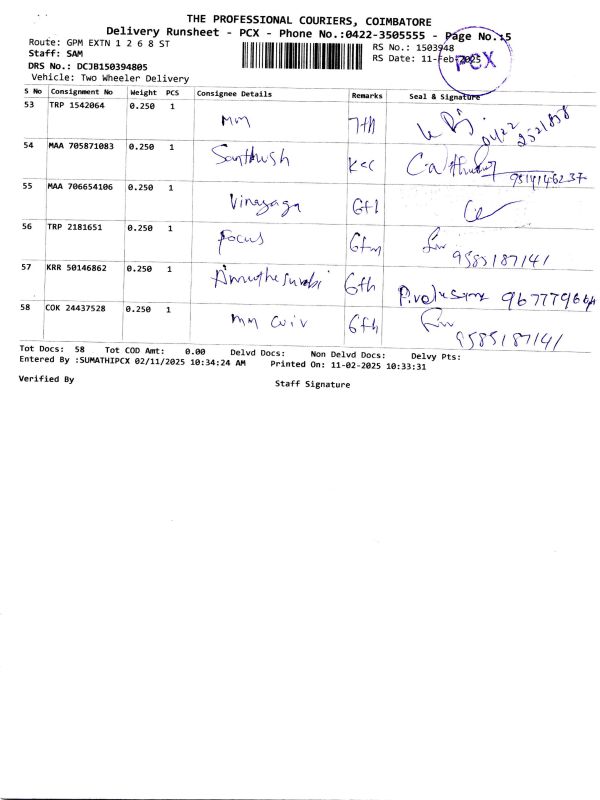 THE PROFESSIONAL COURIERS, COIMBATORE
Delivery Runsheet - PCX - Phone No.:0422-3505555 - Page No.:5
Route: GPM EXTN 1 2 6 8 ST
RS No.: 1503948
Staff: SAM
RS Date: 11-Feb-2025
PCX
DRS No.: DCJB150394805
Vehicle: Two Wheeler Delivery
S No Consignment No Weight PCS Consignee Details Remarks Seal & Signature
53 TRP 1542064 0.250 1 mm 7th 0422 2521858
54 MAA 705871083 0.250 1 Santhush KCC
55 MAA 706654106 0.250 1 Vinayaga
56 TRP 2181651 0.250 1 Focus 9585187141
57 KRR 50146862 0.250 1 6th
58 COK 24437528 0.250 1 mm Coir 6th 9585187141
Tot Docs: 58 Tot COD Amt: 0.00 Delvd Docs: Non Delvd Docs: Delvy Pts:
Entered By :SUMATHIPCX 02/11/2025 10:34:24 AM Printed On: 11-02-2025 10:33:31
Verified By
Staff Signature